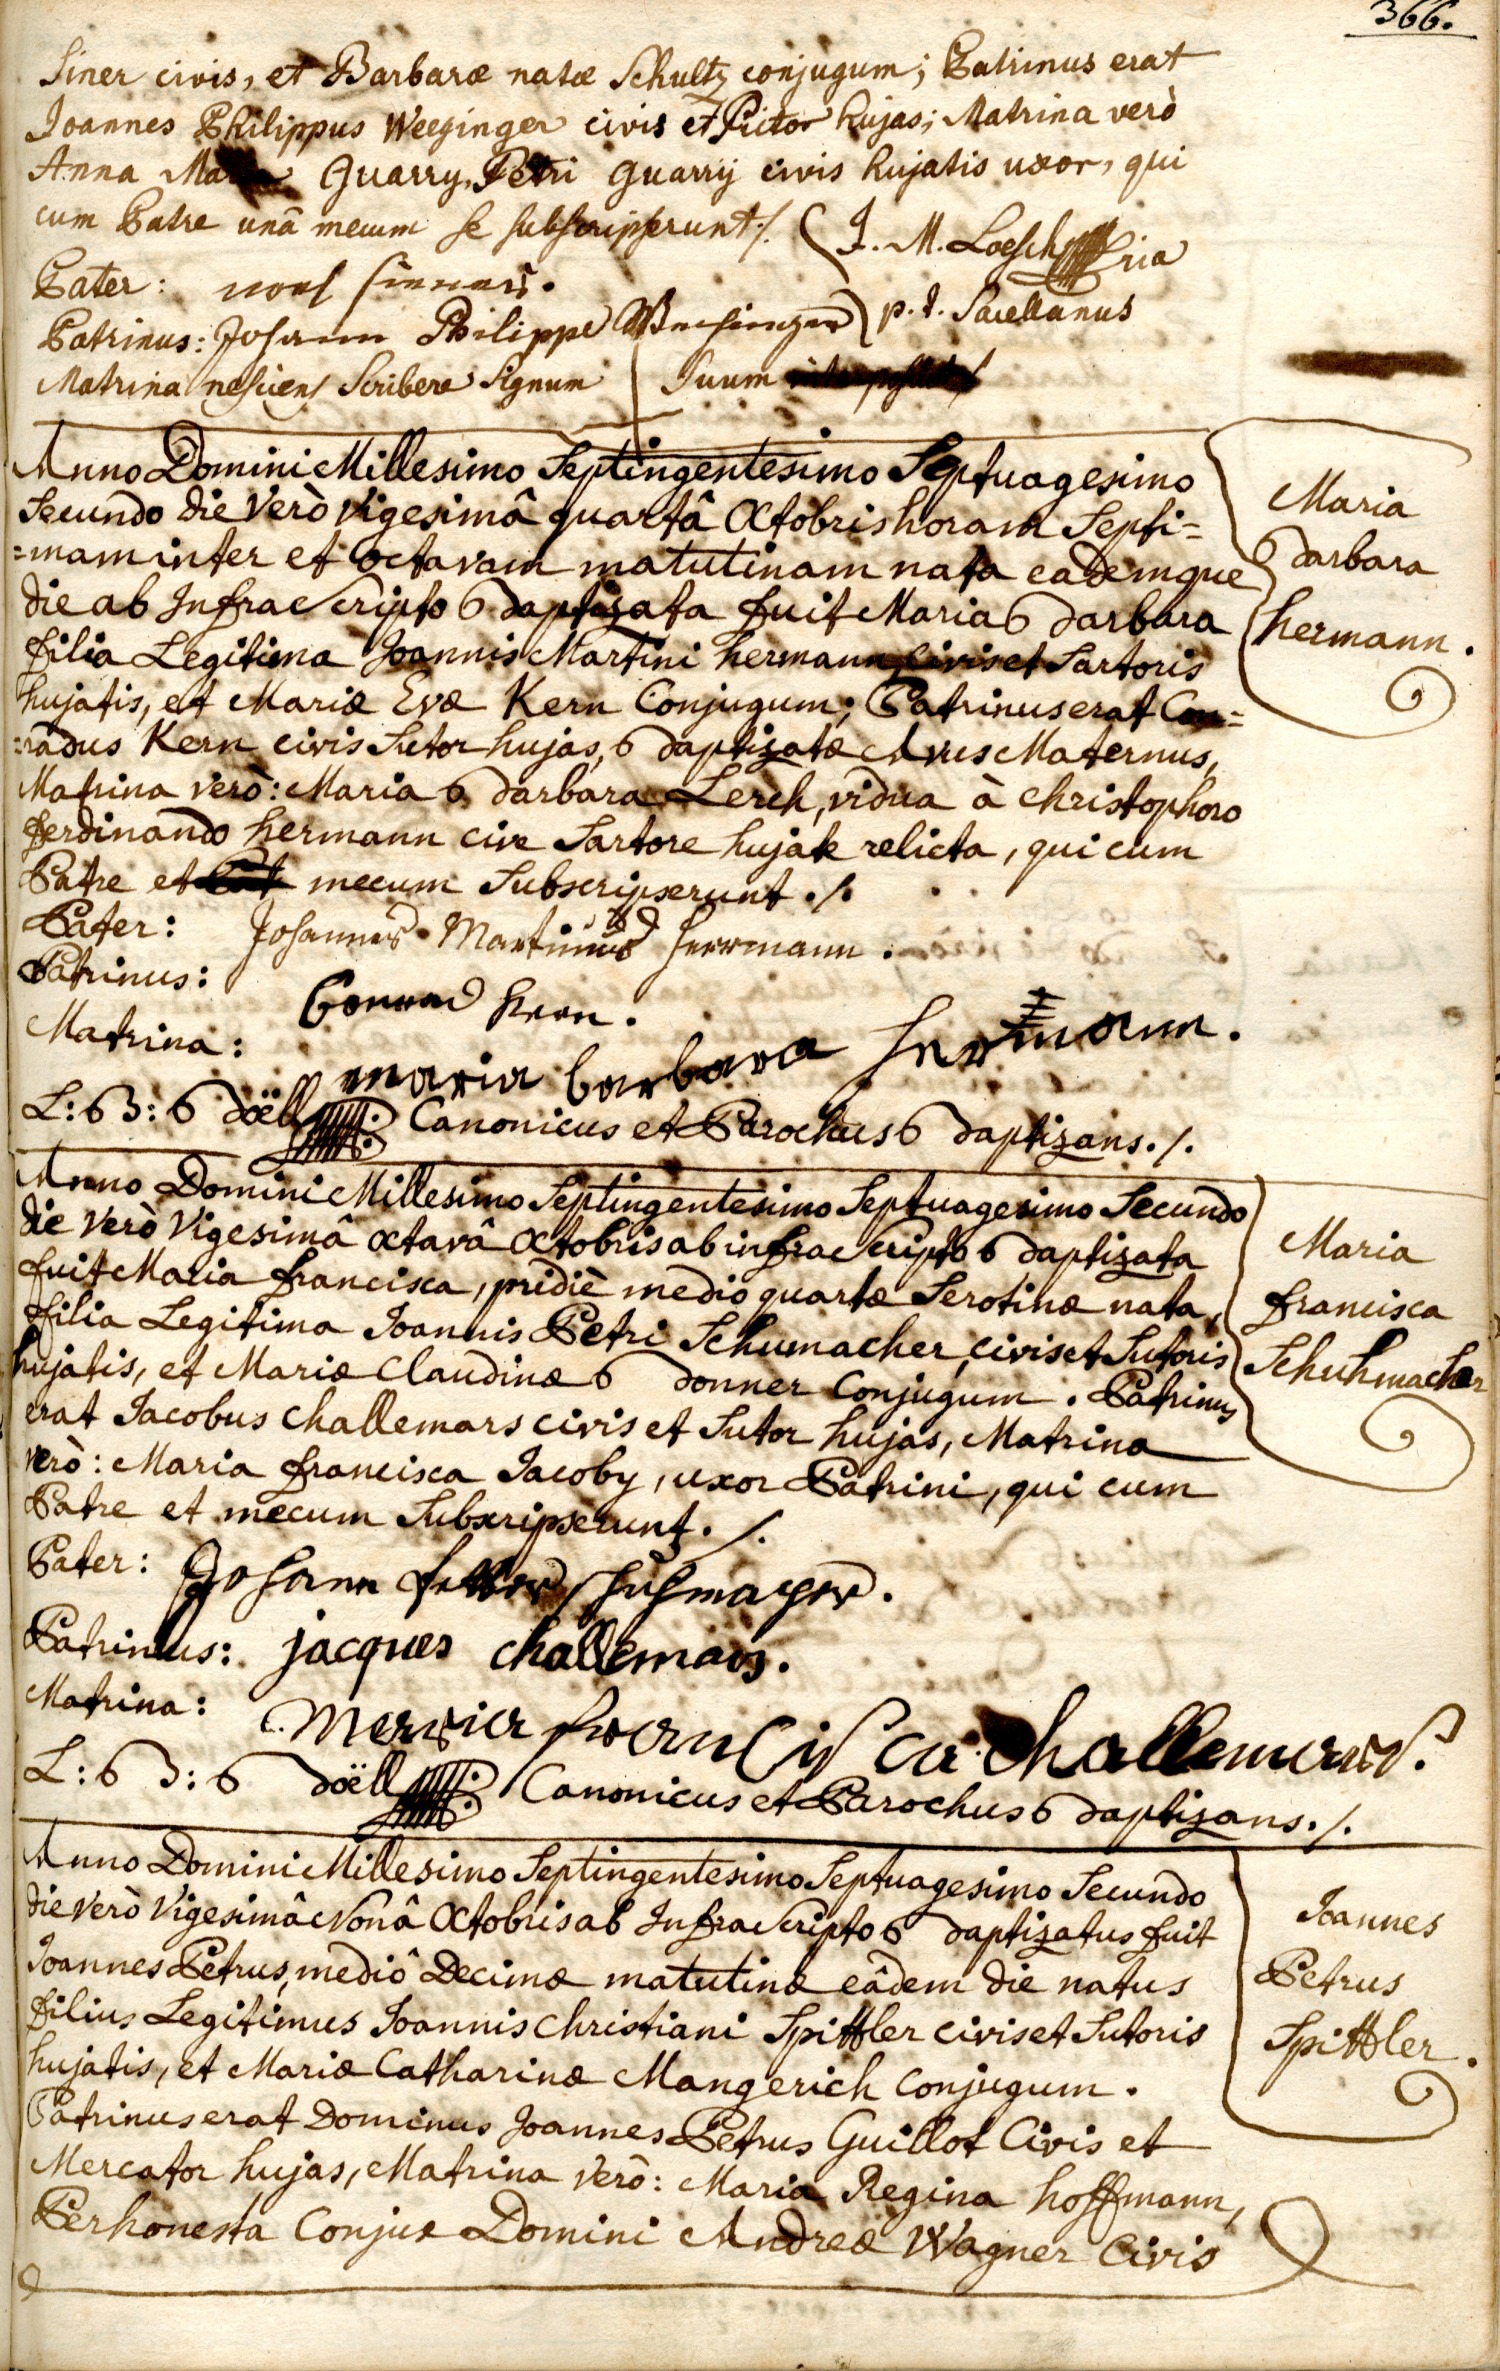 366.
Siner civis, et Barbaræ natæ Schultz conjugum; Patrinus erat
Joannes Philippus Weezinger civis et Pictor hujas; Matrina verò
Anna Maria Quarry, Petri Quarry civis hujatis uxor, qui
cum Patre unâ mecum se subscripserunt ./.
J. M. Loesch
Pater:
p. t. Sacellanus
Patrinus: Johann Philipps
Matrina nesciens scribere signum
suum
Anno Domini Millesimo Septingentesimo Septuagesimo
Secundo die Verò Vigesimâ quartâ Octobris horam Septi=
=mam inter et octavam matutinam nata eademque
die ab Infrascripto Baptizata fuit Maria Barbara
filia Legitima Joannis Martini hermann, civis et Sartoris
hujatis, et Mariæ Evæ Kern Conjugum; Patrinus erat Con=
=radus Kern civis Sutor hujas, Baptizatæ Avus Maternus,
Matrina verò: Maria Barbara Lerch, vidua à Christophoro
ferdinando hermann cive Sartore hujate relicta, qui cum
Patre et mecum Subscripserunt ./.
Maria
Barbara
hermann.
Pater: Johannes Martinus Herrmann.
Patrinus: Conrad Kern.
Matrina: maria barbara Hermann.
L: B: Boëll Canonicus et Parochus Baptizans ./.
Anno Domini Millesimo Septingentesimo Septuagesimo Secundo
die Verò Vigesimâ octavâ Octobris ab infrascripto Baptizata
fuit Maria francisca, pridiè medio quartæ Serotinæ nata,
filia Legitima Joannis Petri Schumacher, civis et Sutoris
hujatis, et Mariæ Claudinæ Bonner Conjugum. Patrinus
erat Jacobus Challemars civis et Sutor hujas, Matrina
verò: Maria francisca Jacoby, uxor Patrini, qui cum
Patre et mecum Subscripserunt ./.
Maria
francisca
Schuhmacher
Pater: Johann Petter schuhmacher.
Patrinus: jacques challemars.
Matrina: Maria francisca challemars.
L: B: Boëll Canonicus et Parochus Baptizans ./.
Anno Domini Millesimo Septingentesimo Septuagesimo Secundo
die Verò Vigesimâ Nonâ Octobris ab Infrascripto Baptizatus fuit
Joannes Petrus, mediô Decimæ matutinæ eâdem die natus
filius Legitimus Joannis Christiani Spittler civis et Sutoris
hujatis, et Mariæ Catharinæ Mangerich conjugum.
Patrinus erat Dominus Joannes Petrus Guillot Civis et
Mercator hujas, Matrina Verò: Maria Regina hoffmann,
Perhonesta Conjux Domini Andreæ Wagner Civis
Joannes
Petrus
Spittler.